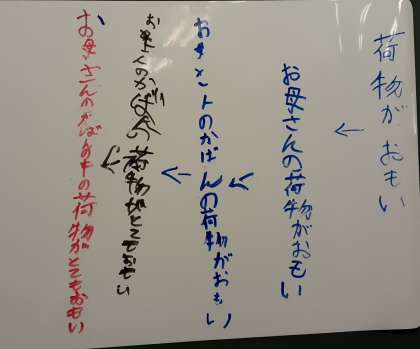 荷物がおもい
お母さんの荷物がおもい
お母さんのかばんの荷物がおもい
お母さんのかばんの荷物がとてもおもい
お母さんのかばんの中の荷物がとてもおもい